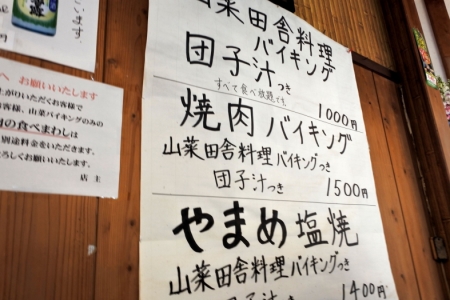 います
円
へ お願いいたします
上がりいただくお客様で
客様、山菜バイキングのみの
の食べまわしは
別途料金をいただきます。
ろしくお願いいたします
店 主
山菜田舎料理
バイキング
団子汁つき
すべて食べ放題です。
1000円
焼肉バイキング
山菜田舎料理バイキングつき
団子汁つき 1500円
やまめ塩焼
山菜田舎料理バイキングつき
団子汁つき 1400円